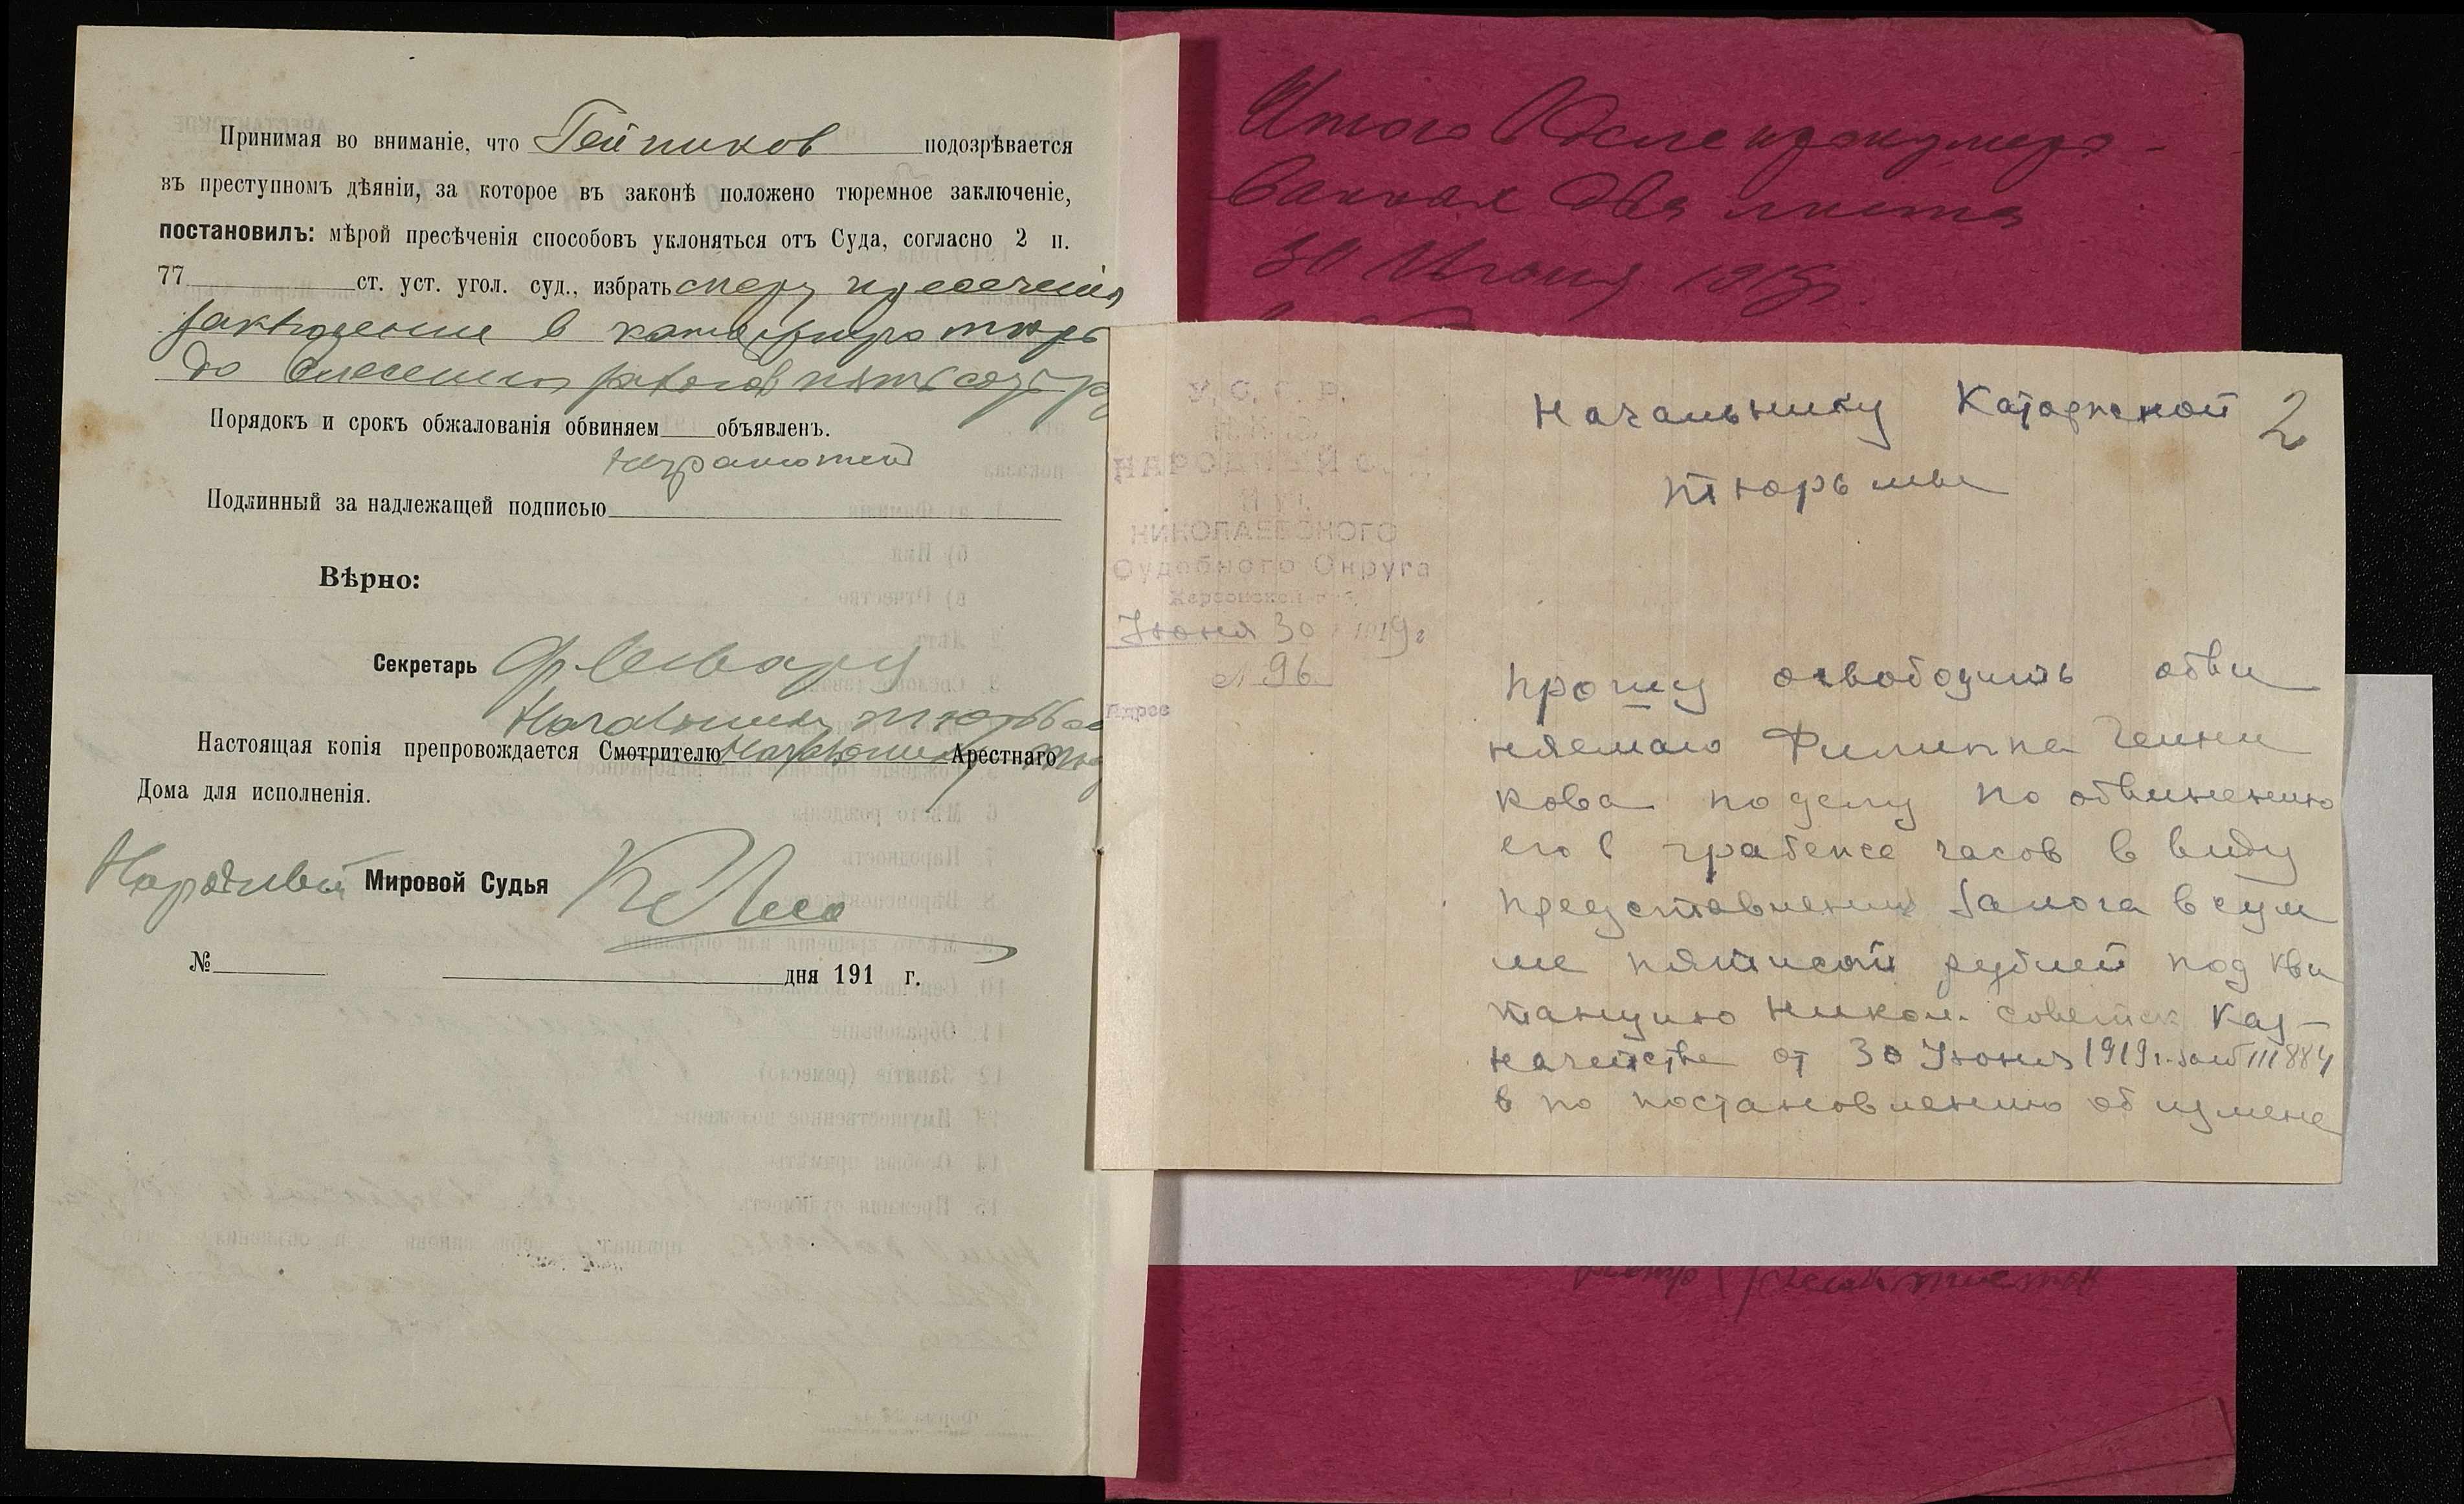 Принимая во вниманіе, что Гейников подозрѣвается
въ преступномъ дѣяніи, за которое въ законѣ положено тюремное заключеніе,
постановилъ: мѣрой пресѣченія способовъ уклоняться отъ Суда, согласно 2 п.
77 ст. уст. угол. суд., избрать меру пресечения
заключение в
до внесения залога пятьсот
Порядокъ и срокъ обжалованія обвиняем объявленъ.
Неграмотен
Подлинный за надлежащей подписью
Вѣрно:
Секретарь
Начальнику
Настоящая копія препровождается Смотрителю Арестнаго
Дома для исполненія.
Народный Мировой Судья
№ дня 191 г.
Итого
два листа
30 1919 г.
2
У. С. С. Р.
НАРОДНЫЙ
НИКОЛАЕВСКОГО
Судебного Округа
Херсонской губ.
Июня 30 1919 г
№ 96
Адрес
Начальнику Каторжной
тюрьмы
Прошу освободить обви
няемаго Филиппа Гейни
кова по делу по обвинению
его в грабеже часов в виду
представления залога в сум
ме пятисот рублей под кви
танцию Никол. советск Каз-
начейства от 30 Июня 1919 г. за №
в по постановлению об измене